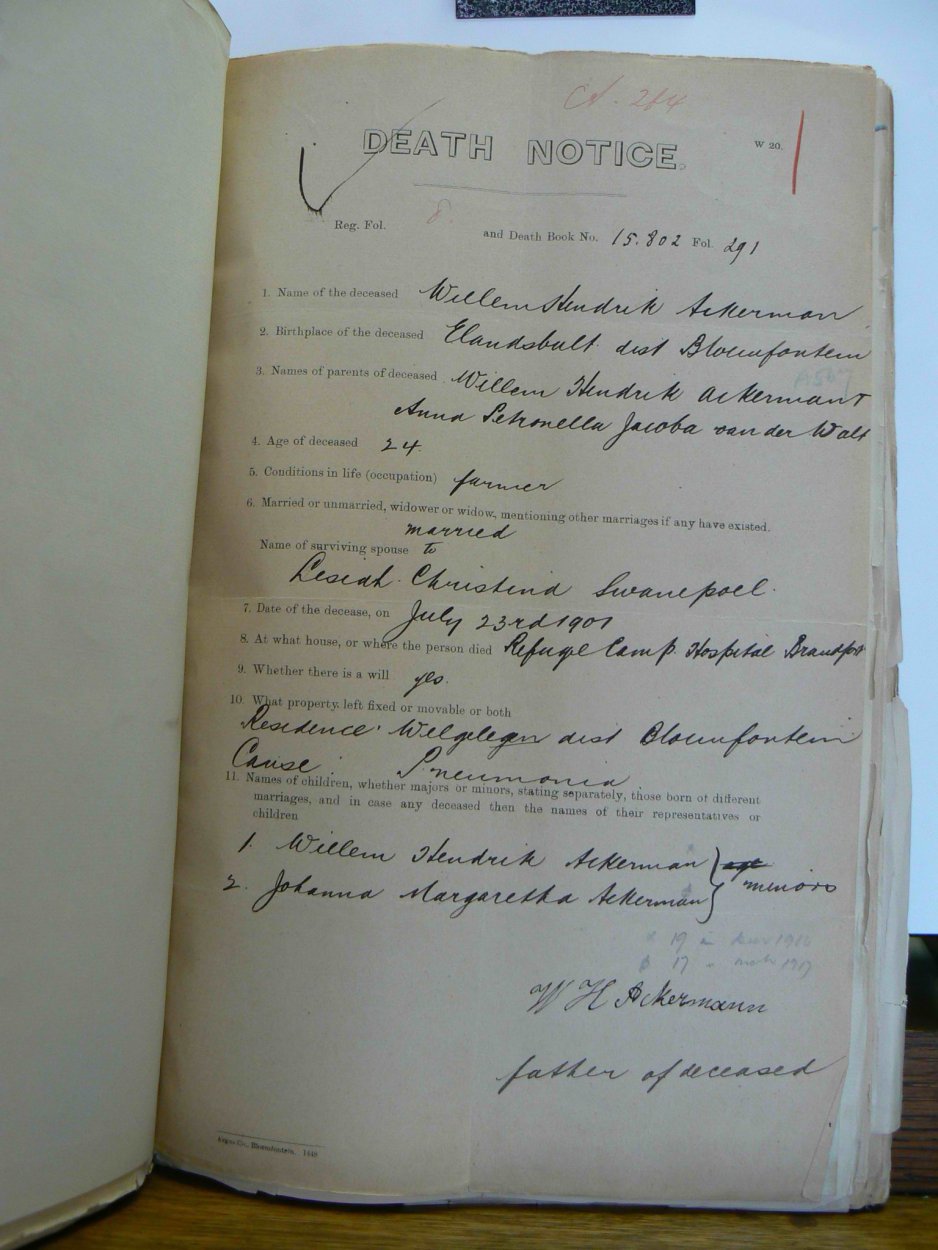 264
DEATH NOTICE.
W 20.
Reg. Fol. 8. and Death Book No. 15.802 Fol. 291
1. Name of the deceased Willem Hendrik Ackerman
2. Birthplace of the deceased Elandsbult dist Bloemfontein
3. Names of parents of deceased Willem Hendrik Ackerman &
Anna Petronella Jacoba van der Walt
4. Age of deceased 24
5. Conditions in life (occupation) farmer
6. Married or unmarried, widower or widow, mentioning other marriages if any have existed.
married
Name of surviving spouse to
Christina Swanepoel.
7. Date of the decease, on July 23rd 1901
8. At what house, or where the person died Refuge Camp Hospital Brandfort
9. Whether there is a will yes.
10. What property left fixed or movable or both
Residence Welgelegen dist Bloemfontein
Cause Pneumonia
11. Names of children, whether majors or minors, stating separately, those born of different
marriages, and in case any deceased then the names of their representatives or
children
1. Willem Hendrik Ackerman
2. Johanna Margaretha Ackerman } minors
19 in 1916
17 1917
W H Ackermann
father of deceased
Argus Co., Bloemfontein. 1448